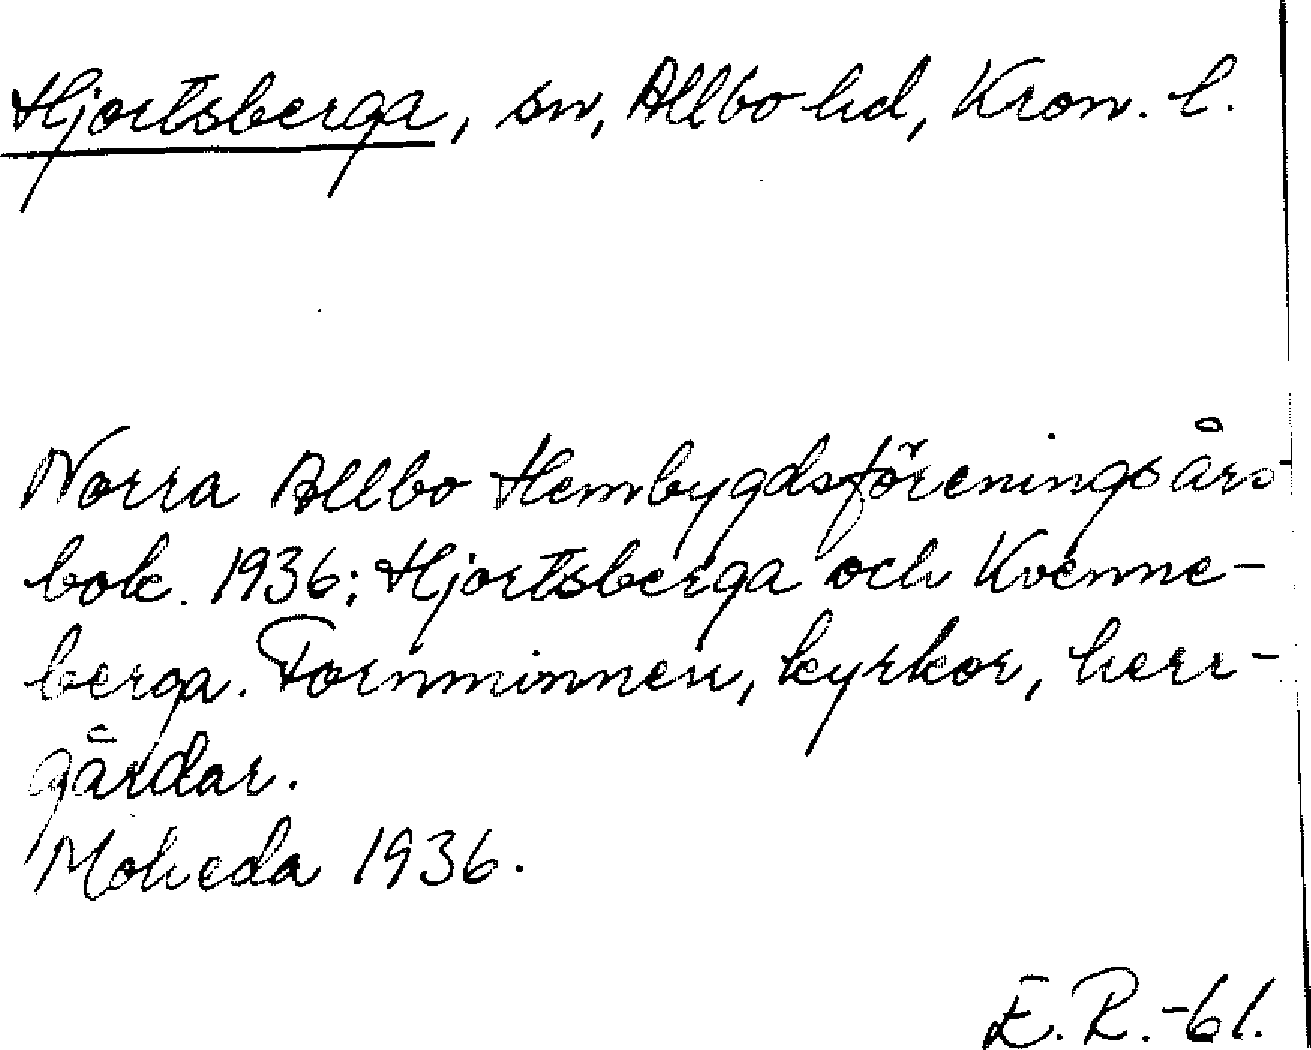 Hjortsberga, sn, Allbo hd, Kron. l.
Norra Allbo Hembygdsföreningsårs-
bok. 1936: Hjortsberga och Kvenne-
berga. Fornminnen, kyrkor, herr-
gårdar.
Moheda 1936.
E. R. -61.